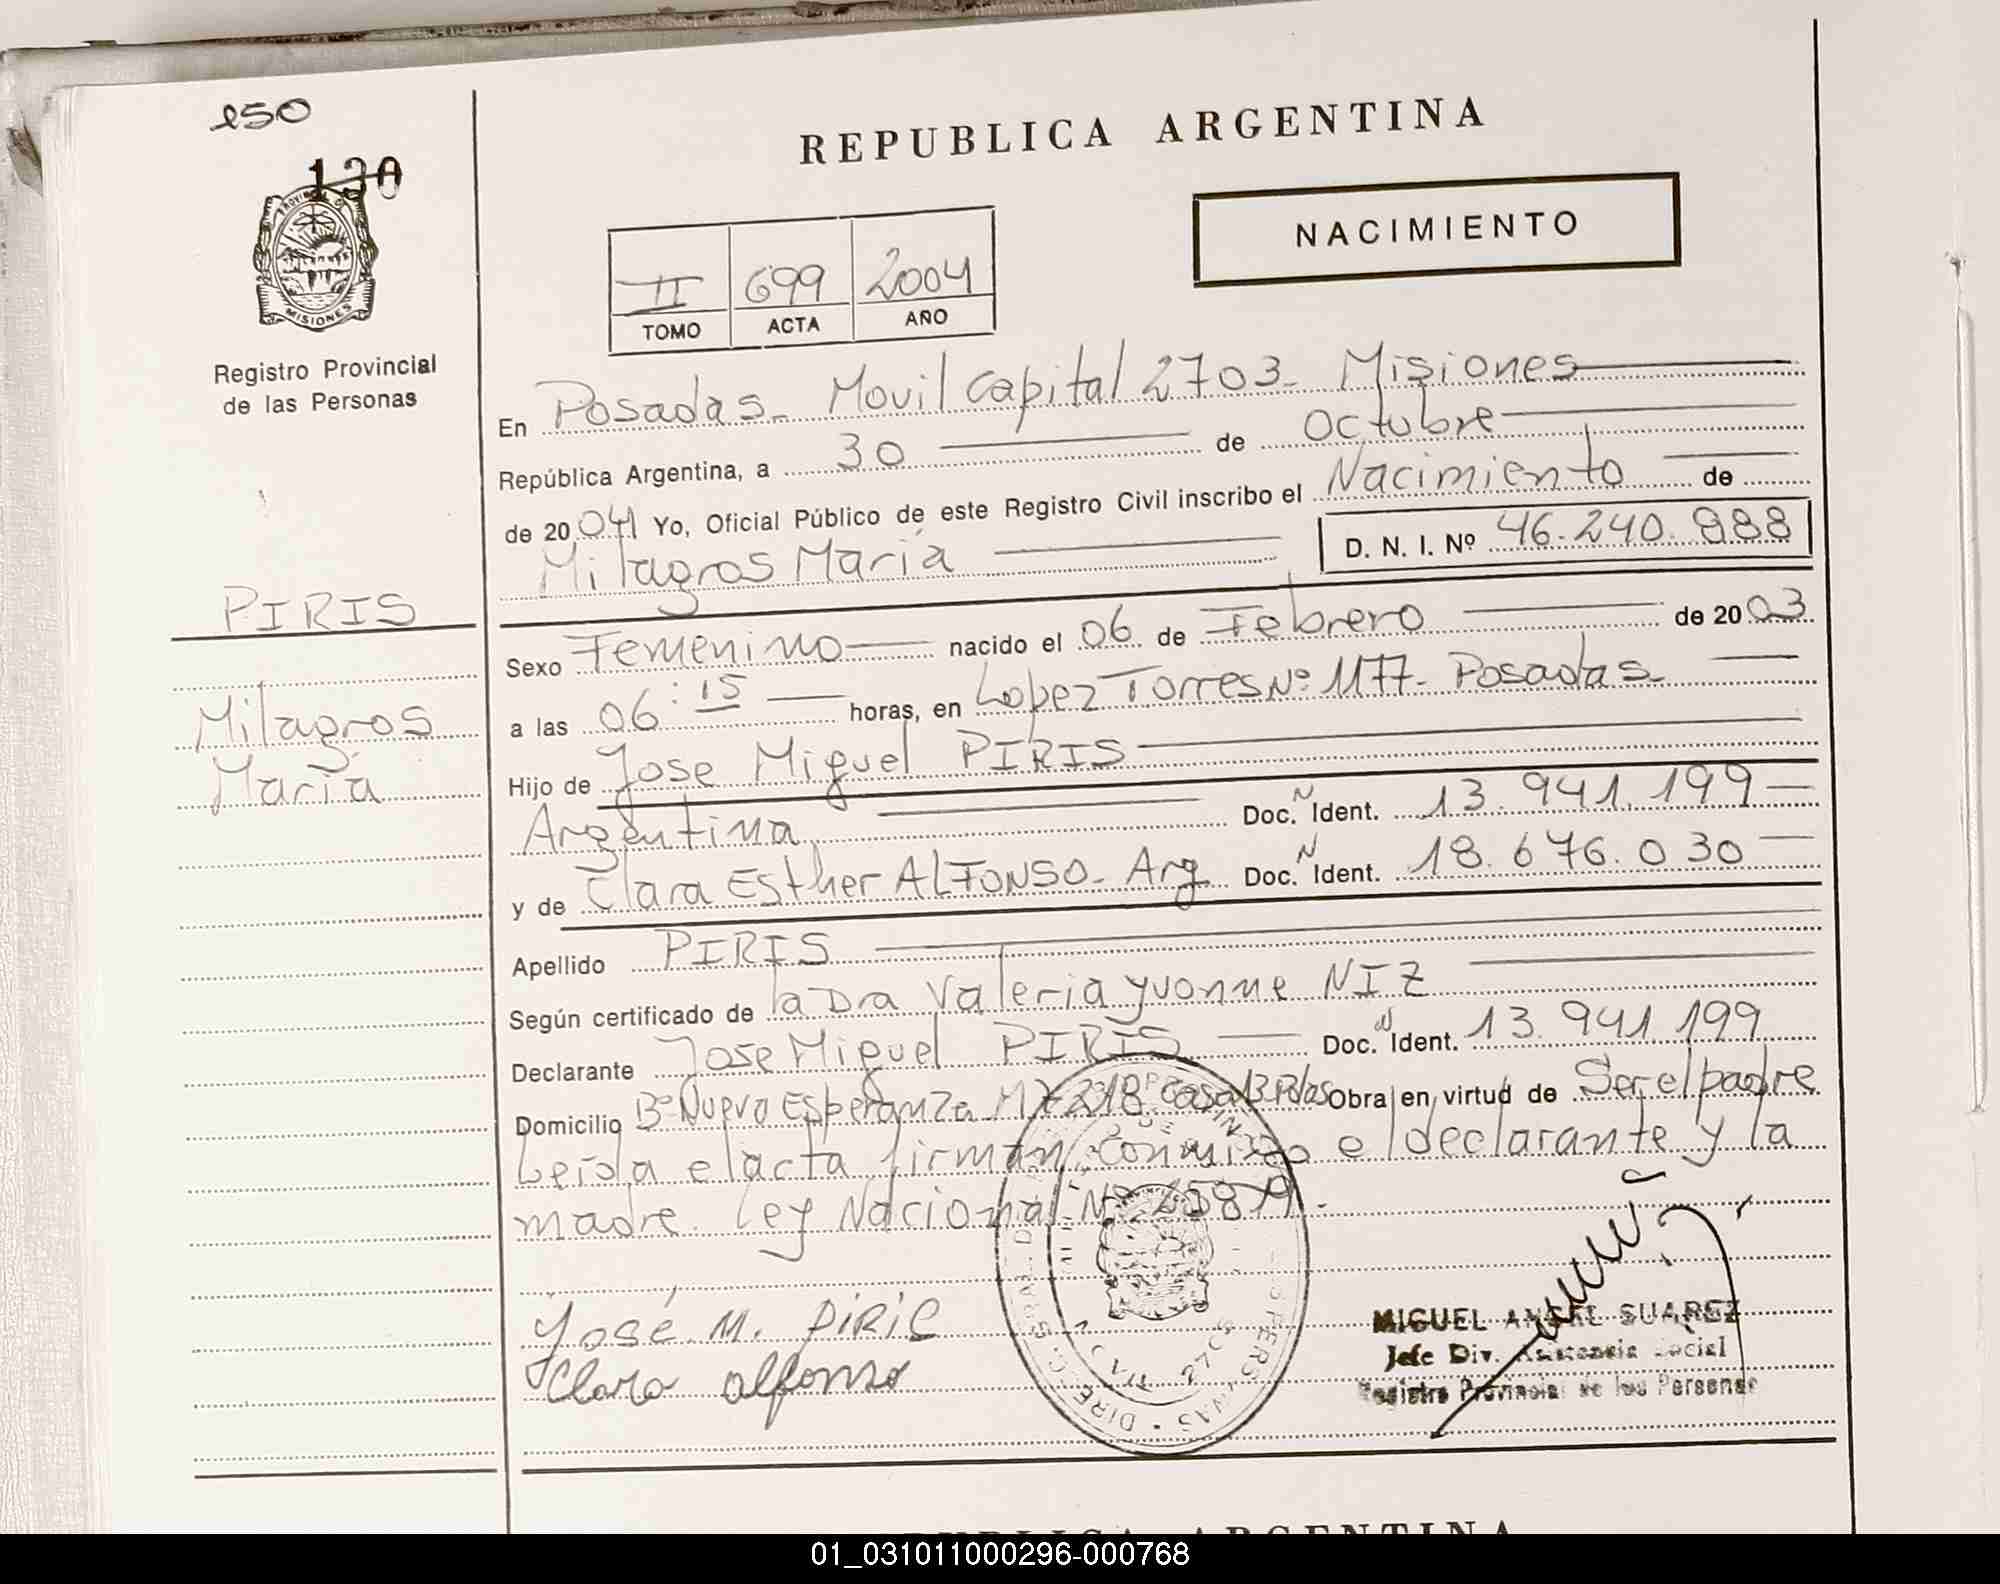 150
130
REPUBLICA ARGENTINA
NACIMIENTO
II 699 2004
TOMO ACTA AÑO
PROVINCIA D
MISIONES
Registro Provincial
de las Personas
En Posadas - Movil Capital 2703 - Misiones
República Argentina, a 30 de Octubre
de 2004 Yo, Oficial Público de este Registro Civil inscribo el Nacimiento de
Milagros María D. N. I. Nº 46.240.988
PIRIS
Milagros
María
Sexo Femenino nacido el 06 de Febrero de 2003
a las 06:15 horas, en Lopez Torres Nº 1177 - Posadas -
Hijo de Jose Miguel PIRIS
Argentina Doc. N Ident. 13.941.199
y de Clara Esther ALFONSO - Arg Doc. N Ident. 18.676.030
Apellido PIRIS
Según certificado de la Dra Valeria Yvonne NIZ
Declarante Jose Miguel PIRIS Doc. N Ident. 13.941.199
Domicilio Bº Nueva Esperanza Mz 218 Casa 13 Pdas Obra en virtud de Ser el padre
Leída el acta firman conmigo el declarante y la
madre. Ley Nacional Nº 25819.-
José M. PIRIS
Clara Alfonso
MIGUEL ANGEL SUAREZ
Jefe Div. Asistencia Social
Registro Provincial de las Personas
REPUBLICA ARGENTINA
01_031011000296-000768